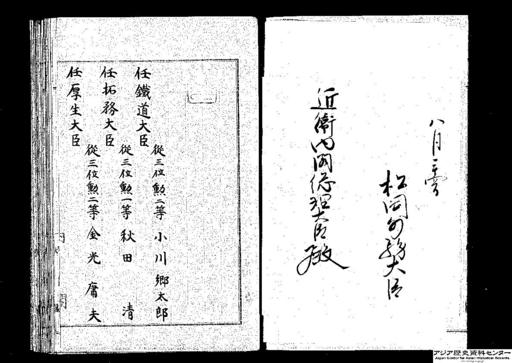 松岡外務大臣
近衛内閣総理大臣殿
任鐵道大臣
從三位勲二等 小川郷太郎
任拓務大臣
從三位勲一等 秋田 清
任厚生大臣
從三位勲二等 金光庸夫
アジア歴史資料センター
Japan Center for Asian Historical Records